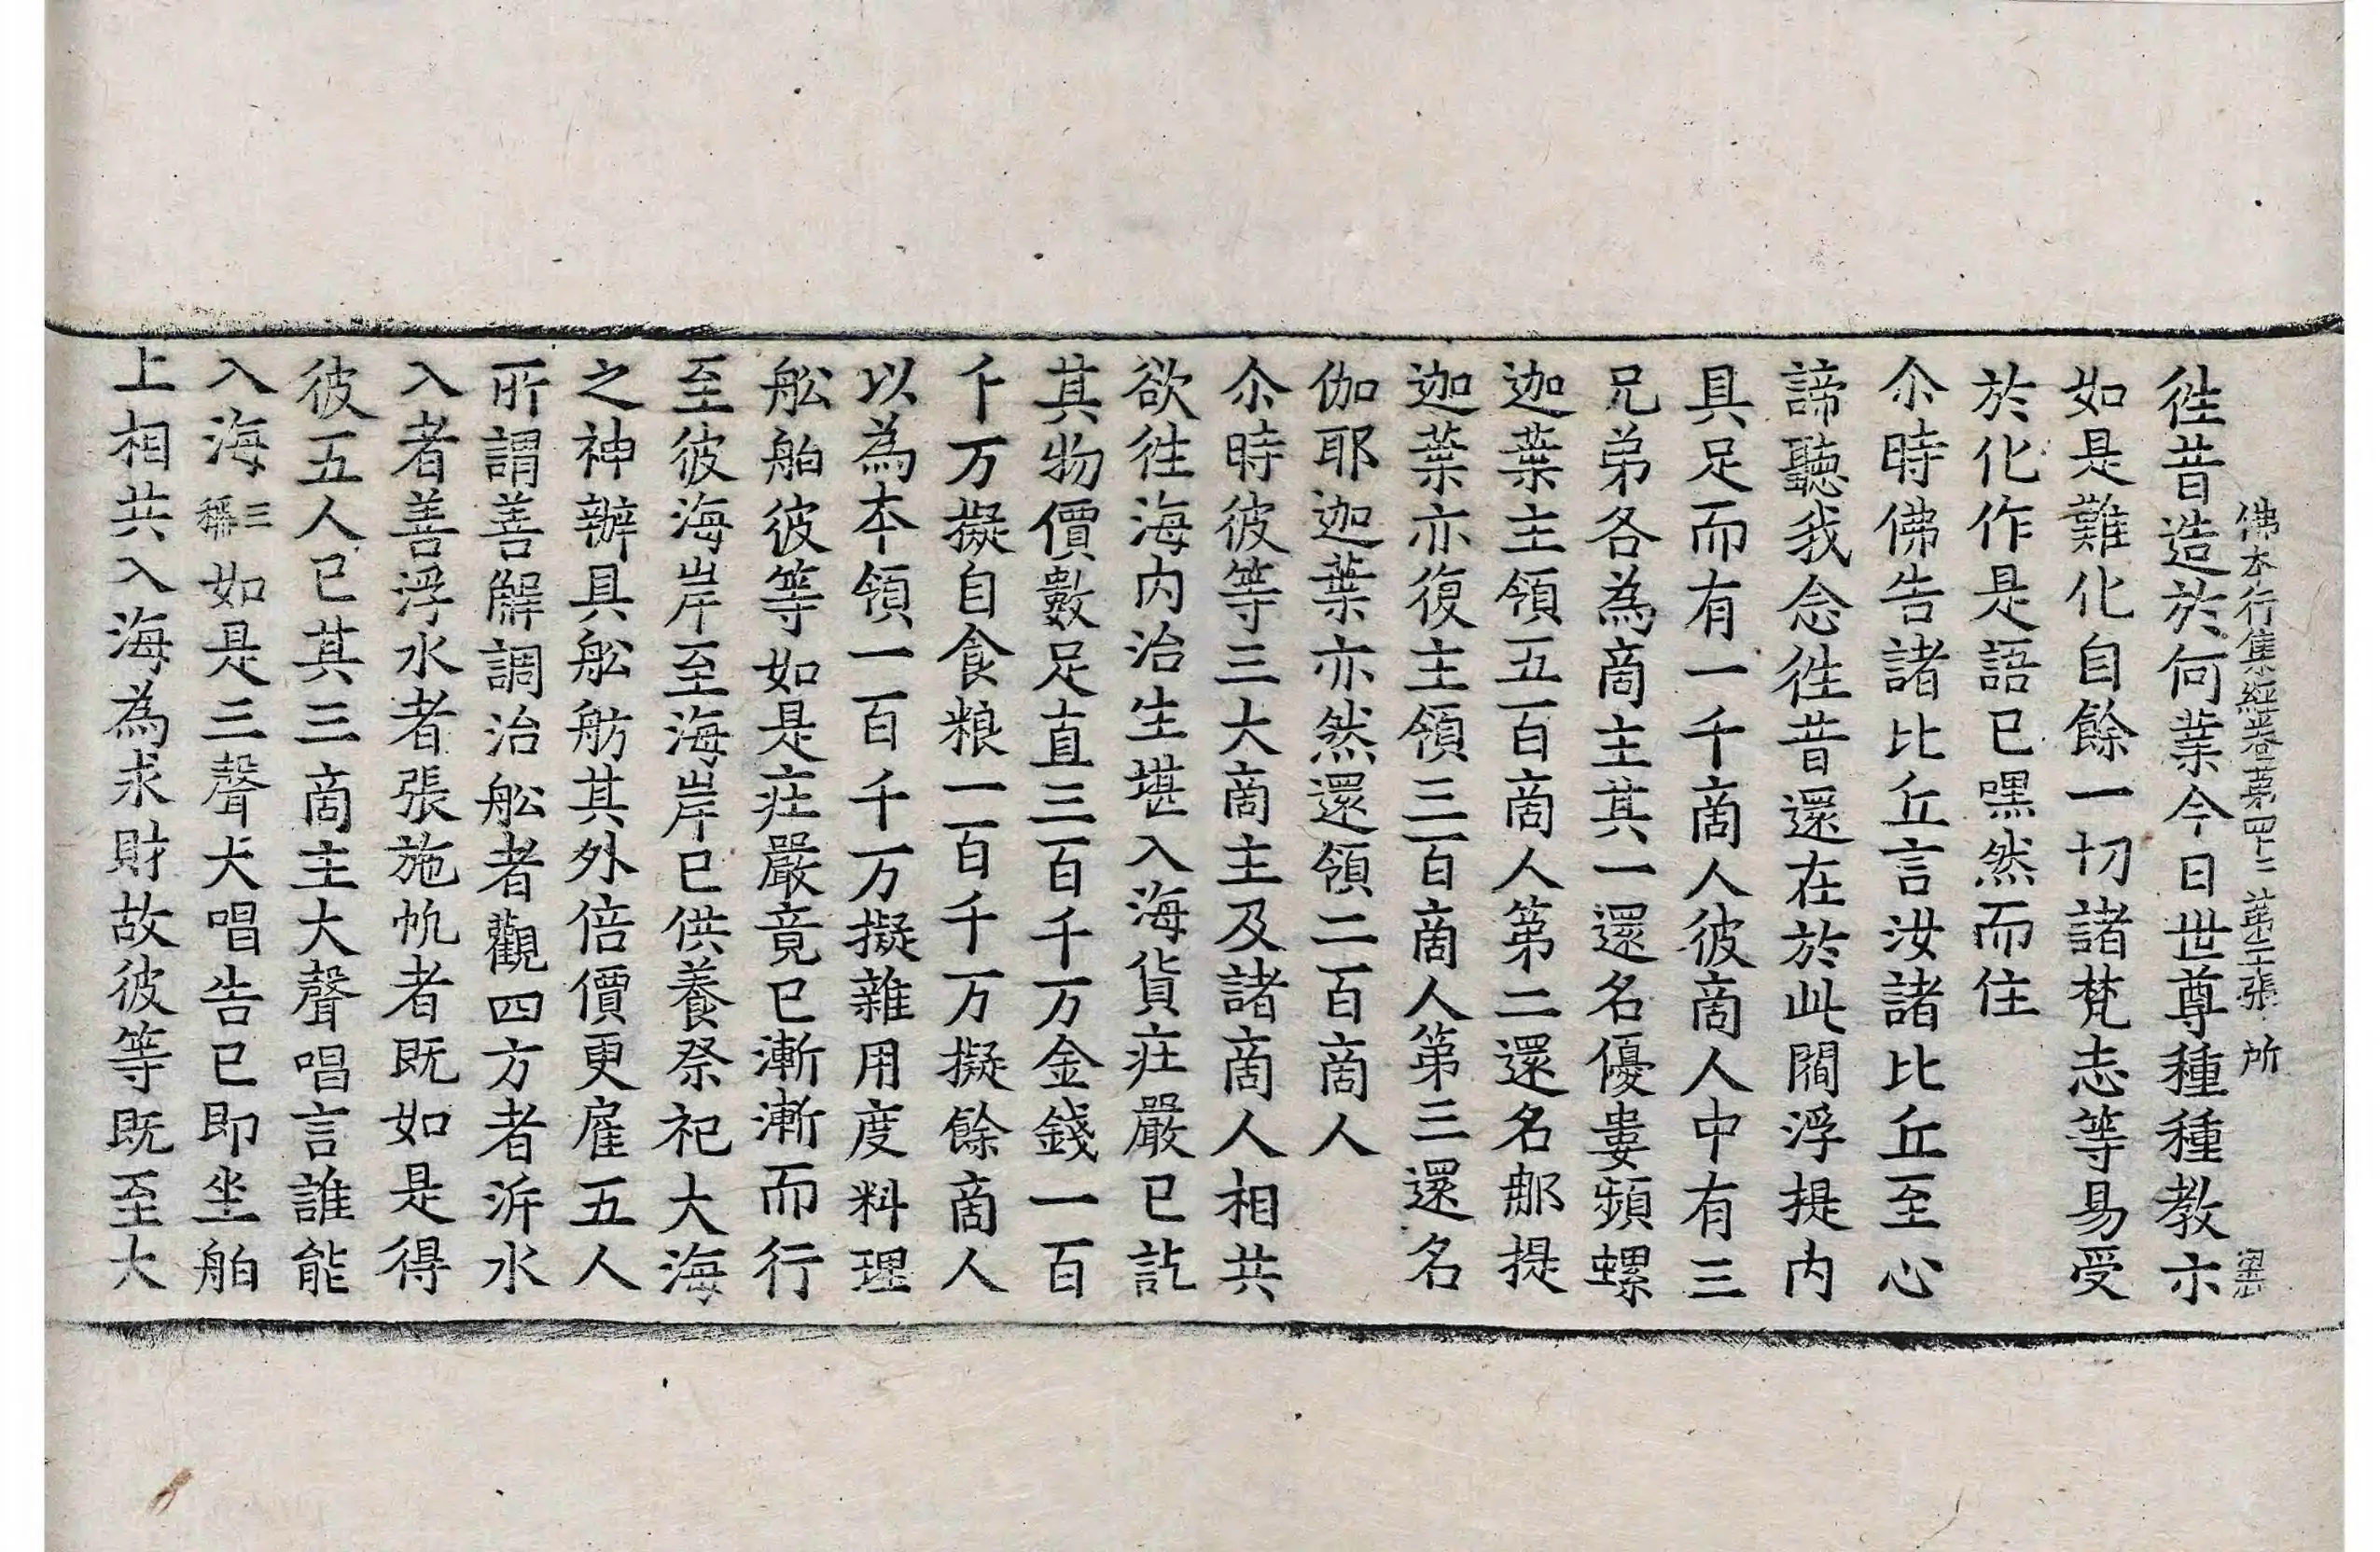 佛本行集經卷第四十二 第二張 所
徃昔造於何業今日世尊種種教示
如是難化自餘一切諸梵志等易受
於化作是語已嘿然而住
尒時佛告諸比丘言汝諸比丘至心
諦聽我念徃昔還在於此閻浮提内
具足而有一千啇人彼啇人中有三
兄弟各為啇主其一還名優婁頻螺
迦葉主領五百啇人第二還名那提
迦葉亦復主領三百啇人第三還名
伽耶迦葉亦然還領二百啇人
尒時彼等三大啇主及諸啇人相共
欲徃海内治生堪入海貨疘嚴已訖
其物價數足直三百千万金錢一百
千万擬自食粮一百千万擬餘啇人
以為本領一百千万擬雜用度料理
舩舶彼等如是疘嚴竟已漸漸而行
至彼海岸至海岸已供養祭祀大海
之神辦具舩舫其外倍價更雇五人
所謂善解調治舩者觀四方者泝水
入者善浮水者張施帆者既如是得
彼五人已其三啇主大聲唱言誰能
入海三稱如是三聲大唱告已即坐舶
上相共入海為求財故彼等既至大